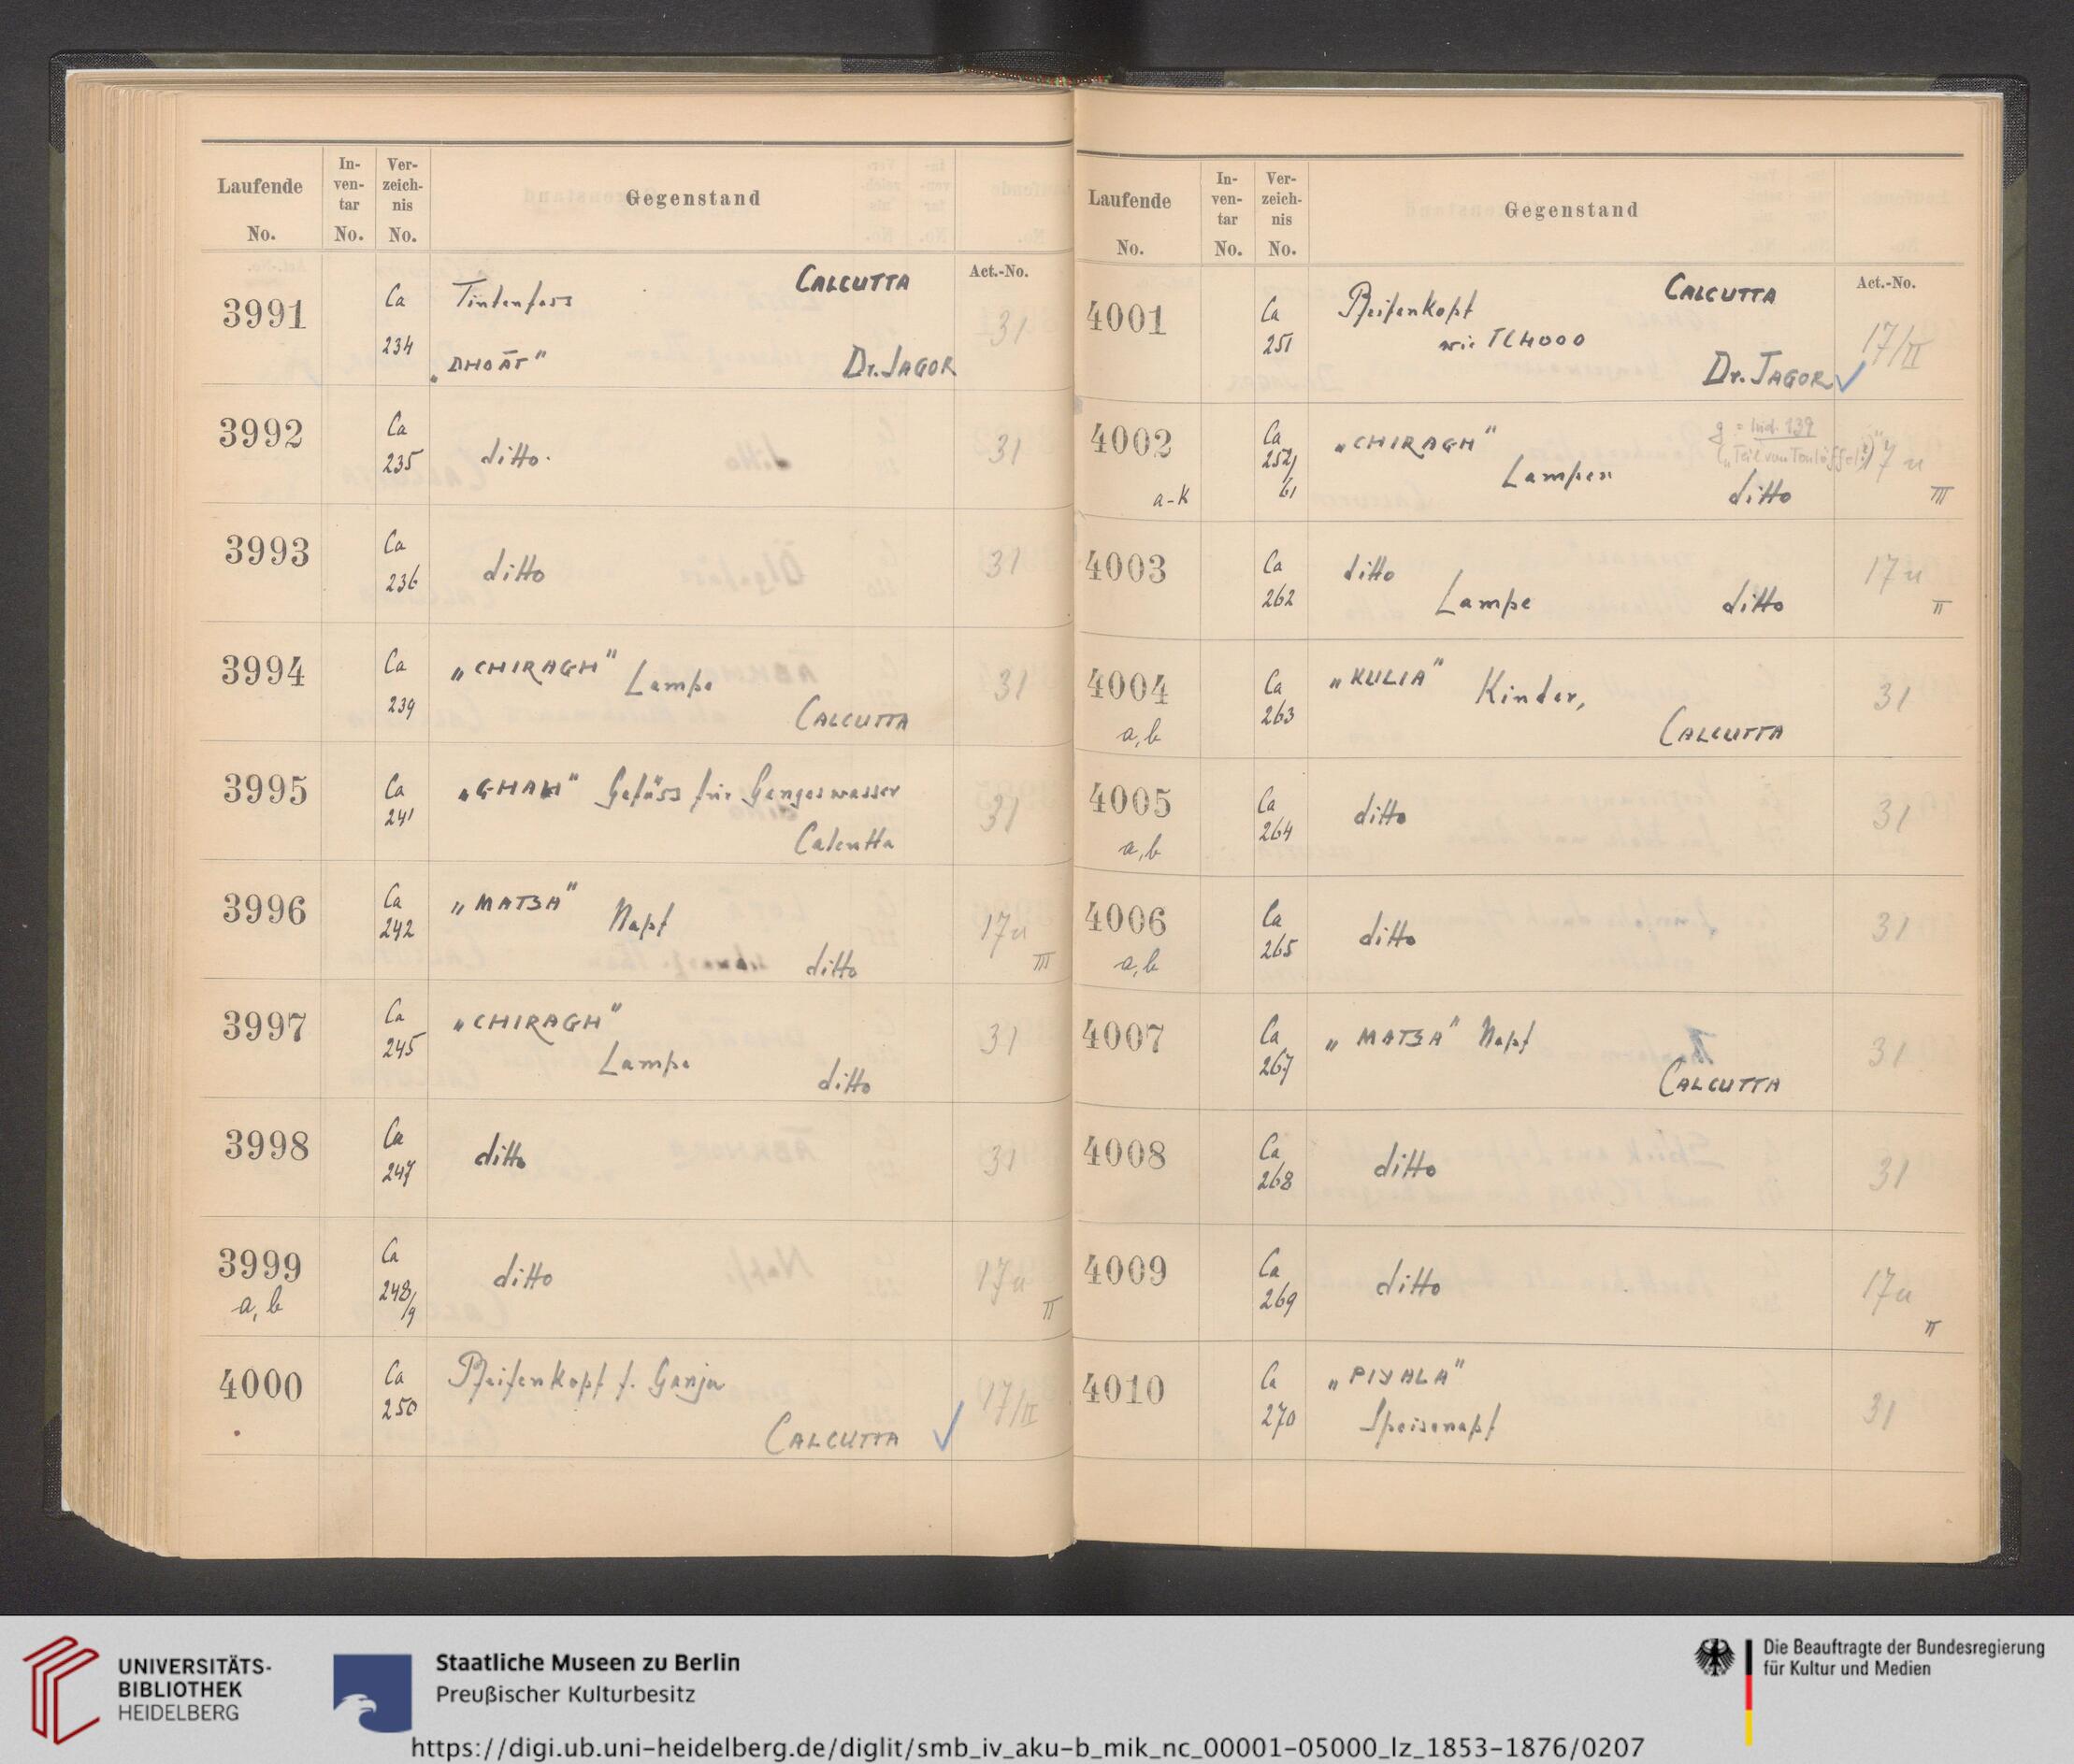 Laufende No.
In-ven-tar No.
Ver-zeich-nis No.
Gegenstand
Act.-No.
3991 Ca 234 Tintenfass CALCUTTA
„DHOĀT" Dr. JAGOR 31
3992 Ca 235 ditto. 31
3993 Ca 236 ditto 31
3994 Ca 239 „CHIRAGH" Lampe
CALCUTTA 31
3995 Ca 241 Gefäss für Gangeswasser
Calcutta 31
3996 Ca 242 „MATЗA" Napf
ditto 17u III
3997 Ca 245 „CHIRAGH"
Lampe
ditto 31
3998 Ca 247 ditto 31
3999 a,b Ca 248/9 ditto 17u II
4000 Ca 250 Pfeifenkopf f. Ganja
CALCUTTA ✓ 17/II
Laufende No.
In-ven-tar No.
Ver-zeich-nis No.
Gegenstand
Act.-No.
4001 Ca 251 Pfeifenkopf CALCUTTA
wie IC4000
Dr. JAGOR ✓ 17/II
4002 a-k Ca 252/61 „CHIRAGH" g = Nid. 139
Lampen („Teil von Tonlöffel?)"
ditto 17u III
4003 Ca 262 ditto
Lampe ditto 17u II
4004 a,b Ca 263 „KULIA" Kinder,
CALCUTTA 31
4005 a,b Ca 264 ditto 31
4006 a,b Ca 265 ditto 31
4007 Ca 267 „MATЗA" Napf
CALCUTTA 31
4008 Ca 268 ditto 31
4009 Ca 269 ditto 17u II
4010 Ca 270 „PIYALA"
Speisenapf 31
UNIVERSITÄTS-
BIBLIOTHEK
HEIDELBERG
Staatliche Museen zu Berlin
Preußischer Kulturbesitz
Die Beauftragte der Bundesregierung
für Kultur und Medien
https://digi.ub.uni-heidelberg.de/diglit/smb_iv_aku-b_mik_nc_00001-05000_lz_1853-1876/0207